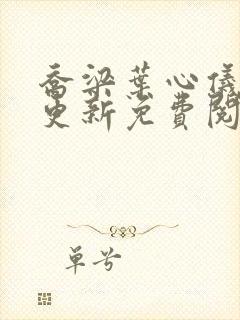 乔梁叶心仪
更新免费阅
单兮